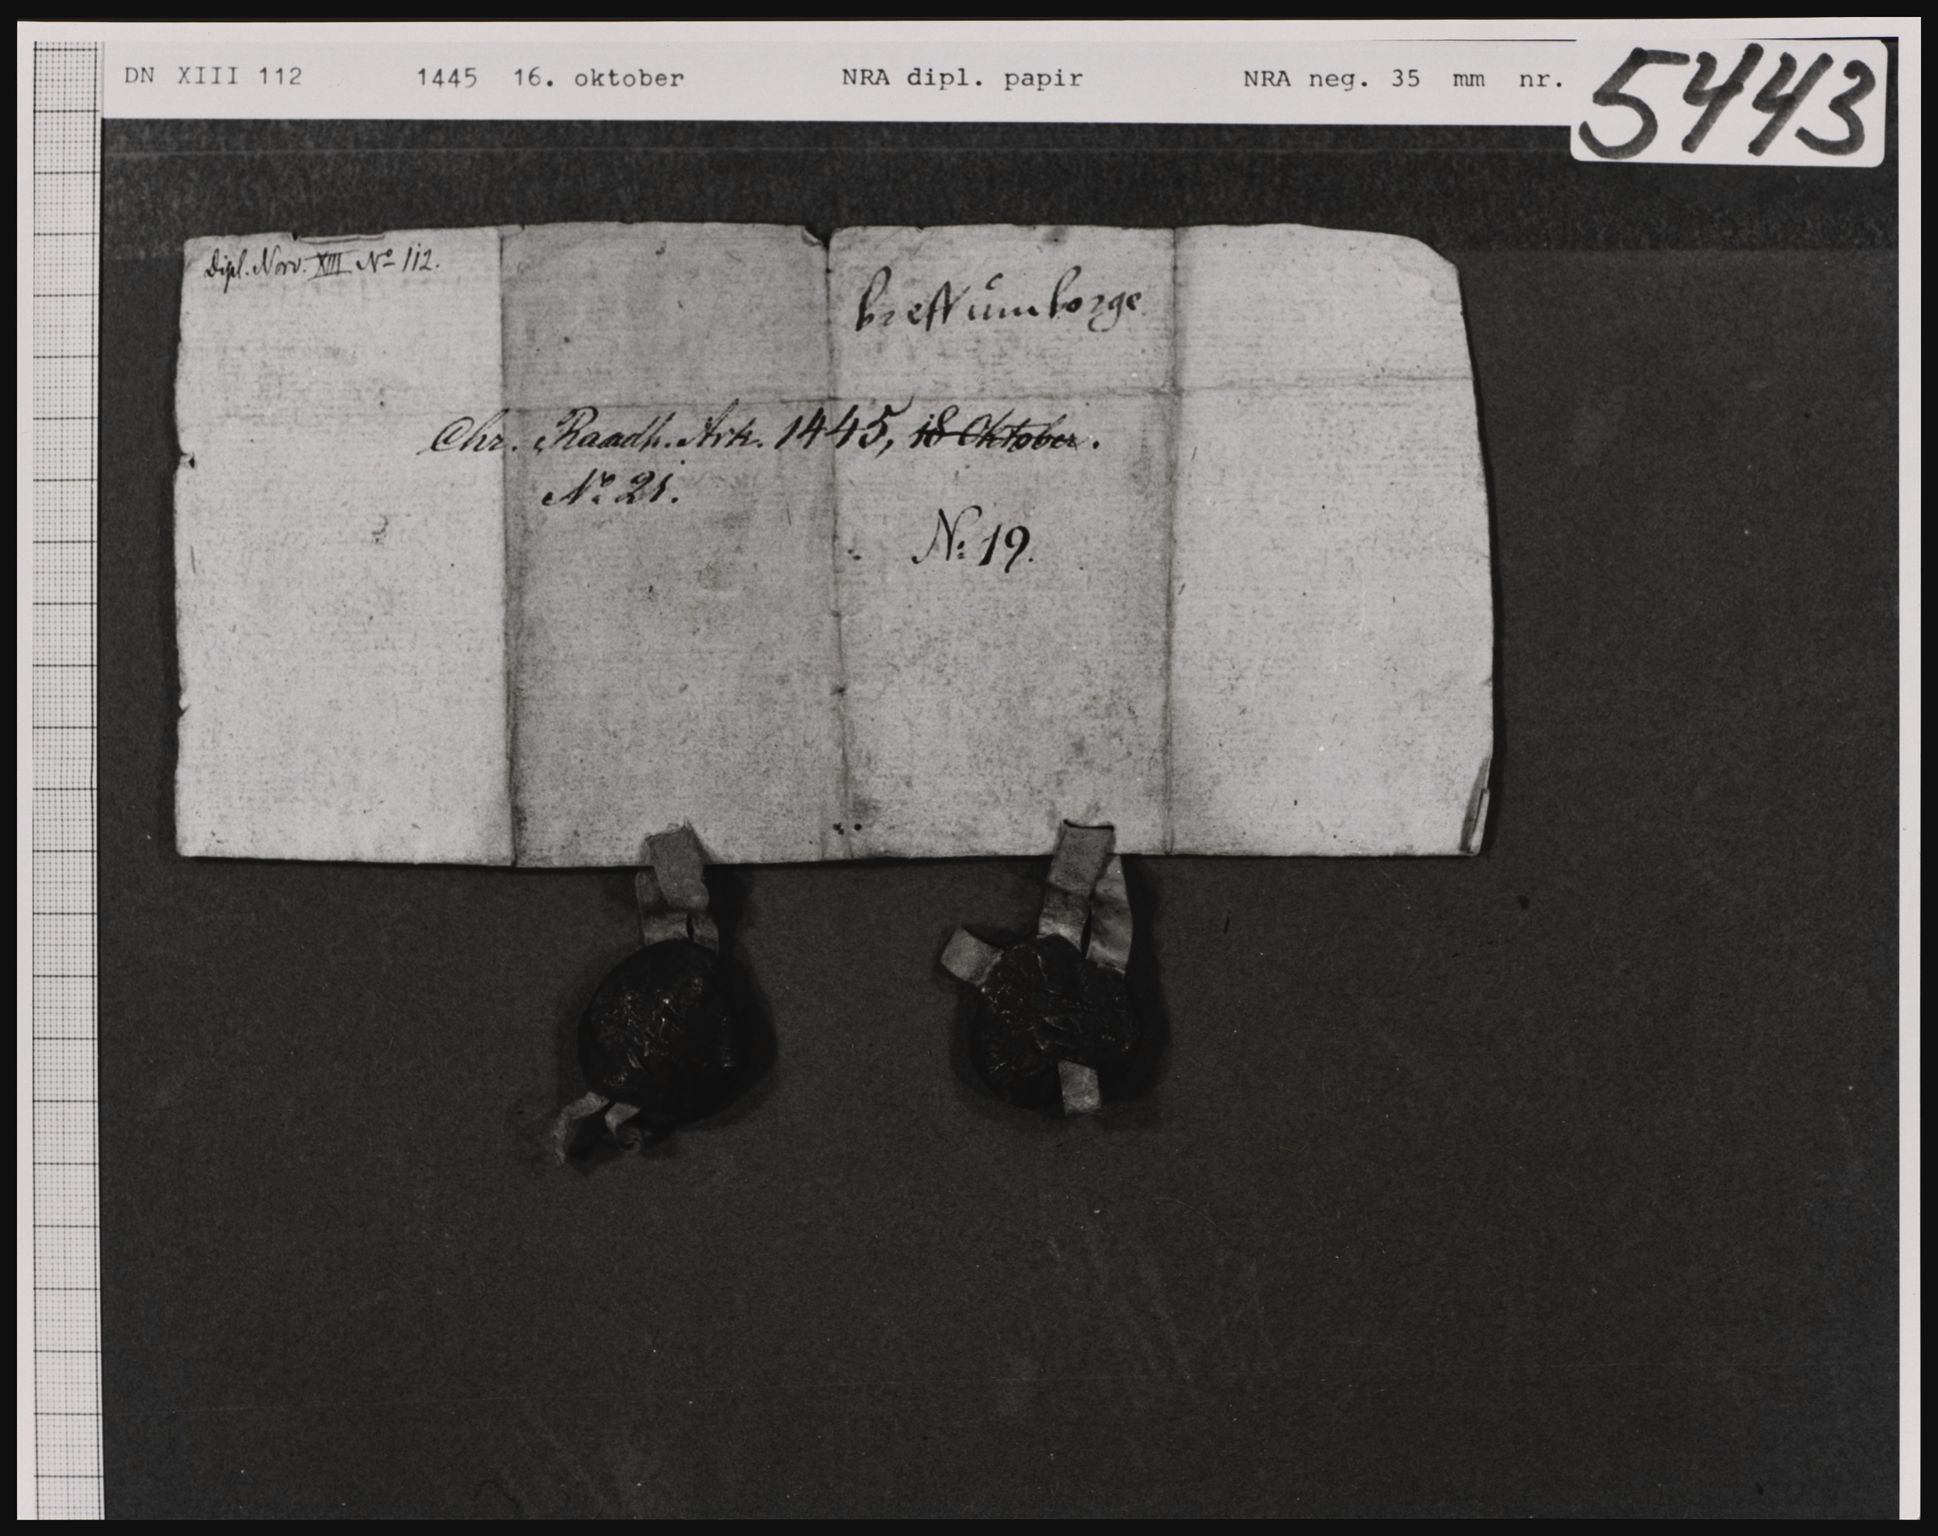 DN XIII 112 1445 16. oktober NRA dipl. papir NRA neg. 35 mm nr. 5443
Dipl. Norv. XIII No 112.
breff um borge
Chr. Raadh. Ark. 1445, 18 Oktober.
No 21.
N: 19.